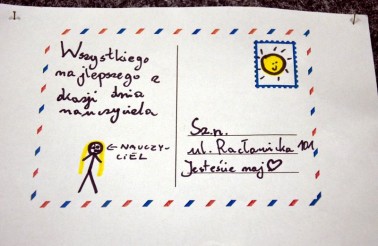 Wszystkiego
najlepszego z
okazji dnia
nauczyciela
← NAUCZY-
CIEL
Sz.n.
ul. Racławicka 101
Jesteście maj♡